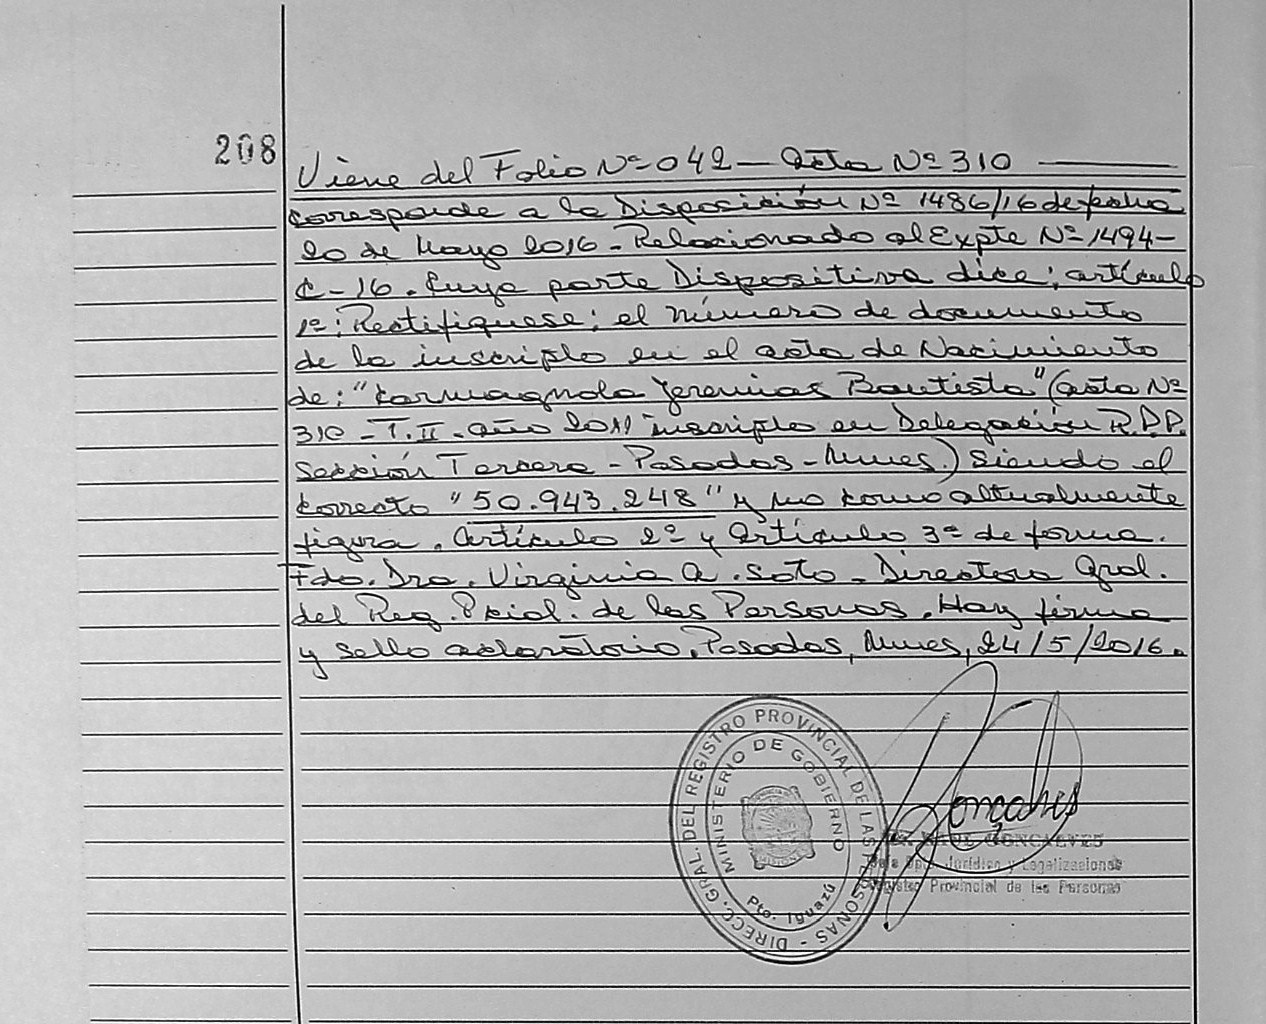 208
Viene del Folio Nº 042 — Acta Nº 310
corresponde a la Disposición Nº 1486/16 de fecha
20 de Mayo 2016 - Relacionado al Expte Nº 1494-
C-16. Cuya parte Dispositiva dice: artículo
1º: Rectifiquese: el número de documento
de lo inscripto en el acta de Nacimiento
de: "Carmagnola Jeremias Bautista" (acta Nº
310 - T. II - año 2011 inscripto en Delegación R.P.P.
Sección Tercera - Posadas - Mnes.) siendo el
correcto "50.943.248" y no como actualmente
figura. Artículo 2º y Artículo 3º de forma.
Fdo. Dra. Virginia A. Soto - Directora Gral.
del Reg. Pcial. de las Personas. Hay firma
y sello aclaratorio. Posadas, Mnes, 24/5/2016.
DIRECC. GRAL. DEL REGISTRO PROVINCIAL DE LAS PERSONAS -
MINISTERIO DE GOBIERNO
MISIONES
Pto. Iguazú
Gonçalves
RAUL GONCALVES
Dpto. Jurídico y Legalizaciones
Registro Provincial de las Personas